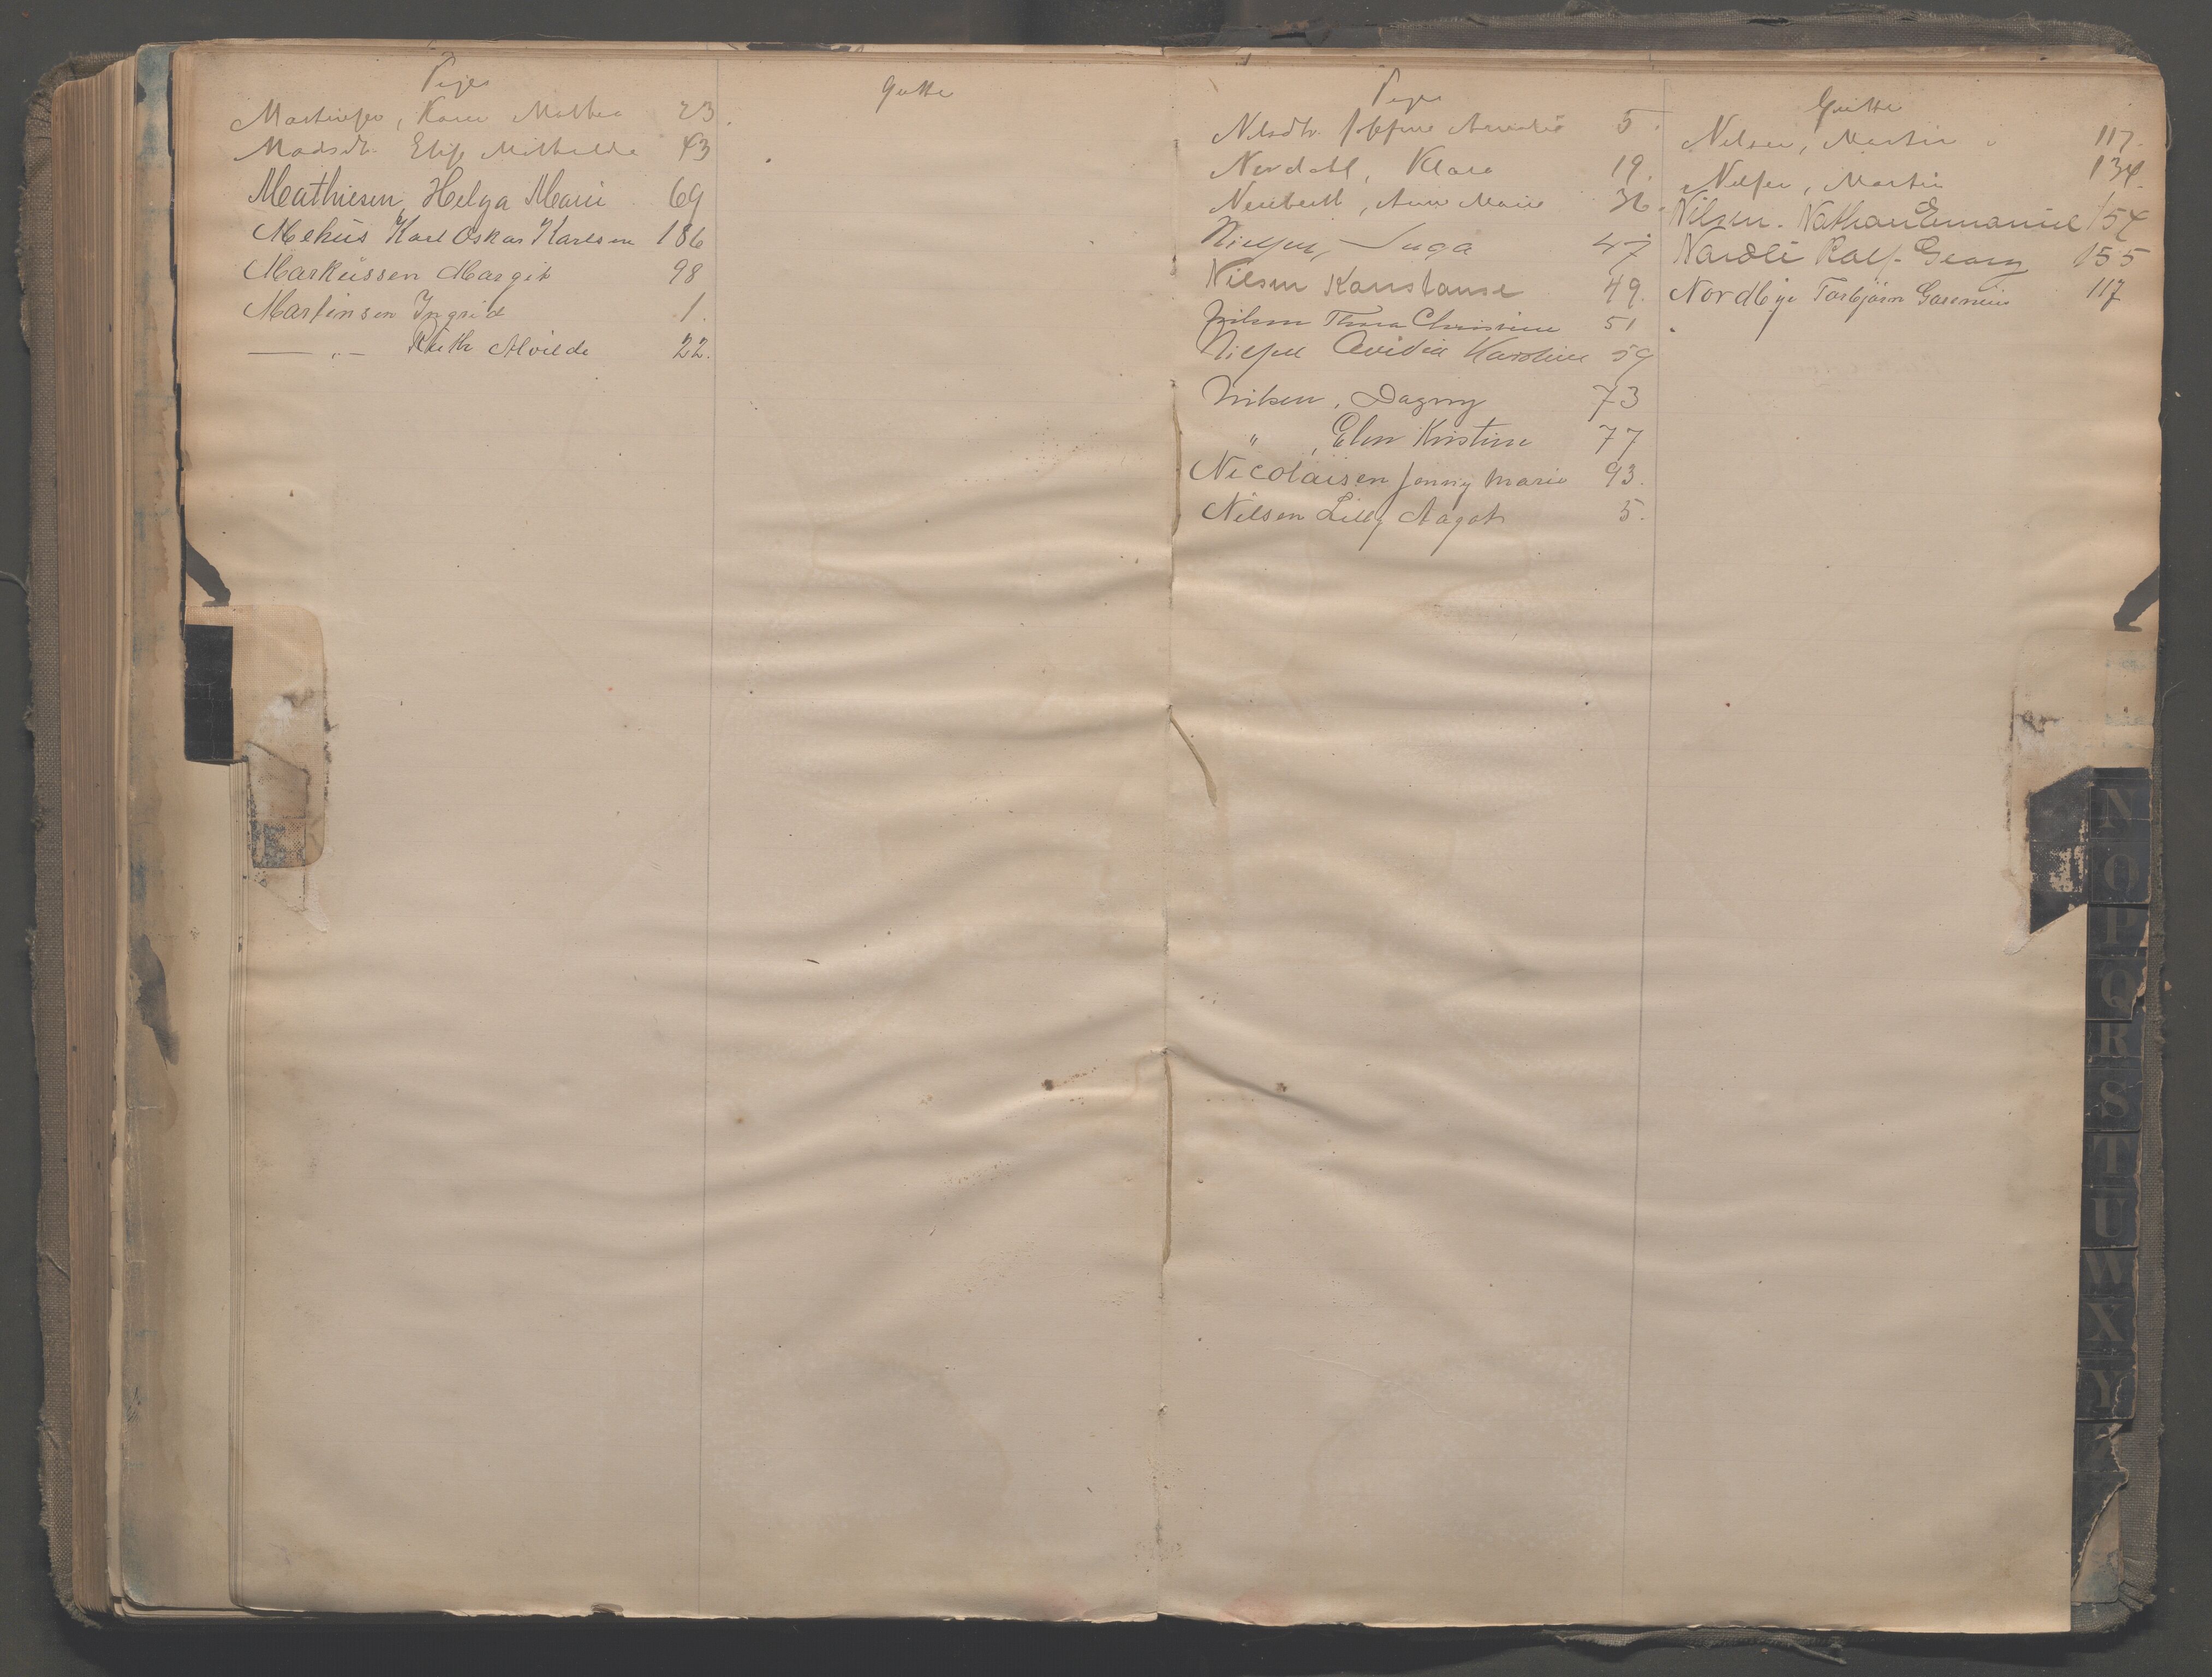 Piger
Martinsen, Karen Mathea 23.
Madsdtr. Elise Mathilde 43
Mathiesen, Helga Marie 69
Mehus Karl Oskar Karlsen 186
Markussen Margit 98
Martinsen Ingrid 1.
— „ — Ruth Alvilde 22.
Gutter
Piger
Nilsdtr. Josefine Amalie 5.
Nordahl, Klara 19.
Anna Marie 36.
Nielsen, Inga 47
Nilsen Konstanse 49.
Nilsen Thora Christine 51
Nielsen Ovidia Karoline 59
Nilsen, Dagny 73
" , Elen Kristine 77
Nicolaisen Jenny Marie 93.
Nilsen Lilly Aagot 5.
Gutter
Nilsen, Martin 117.
Nilsen, Martin 134.
Nilsen. Nathan Emanuel 154
Nardli Ralf. Georg 155
Nordbye Torbjørn 117
N
O
P
Q
R
S
T
U
W
X
Y
Z